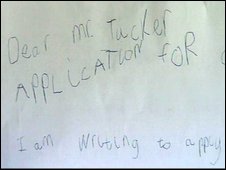 Dear Mr. Tucker
APPLICATION FOR
I am writing to apply